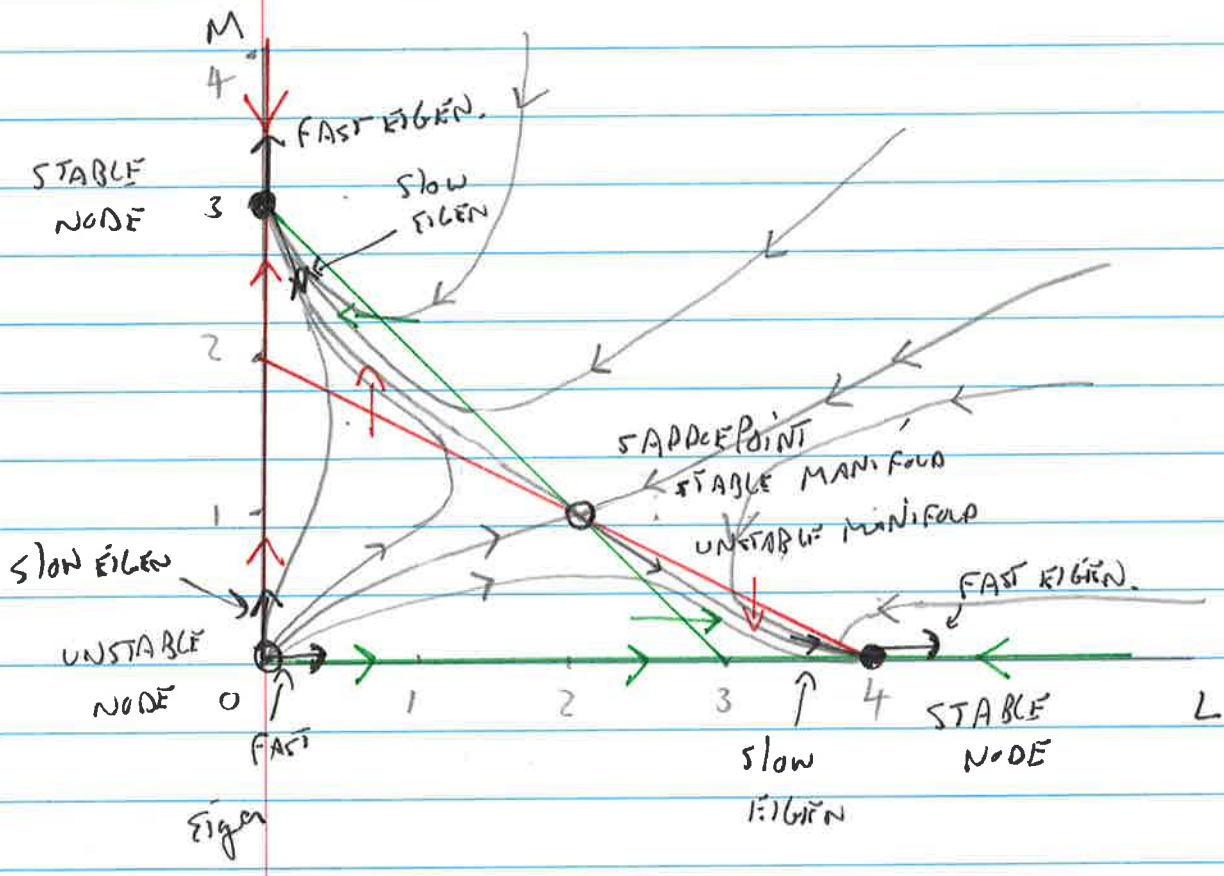 M
4
FAST EIGEN.
STABLE
NODE
3
Slow
EIGEN
2
SADDLEPOINT
STABLE MANIFOLD
1
UNSTABLE MANIFOLD
Slow EIGEN
FAST EIGEN.
UNSTABLE
NODE
0
1
2
3
4
L
FAST
Eigen
Slow
EIGEN
STABLE
NODE